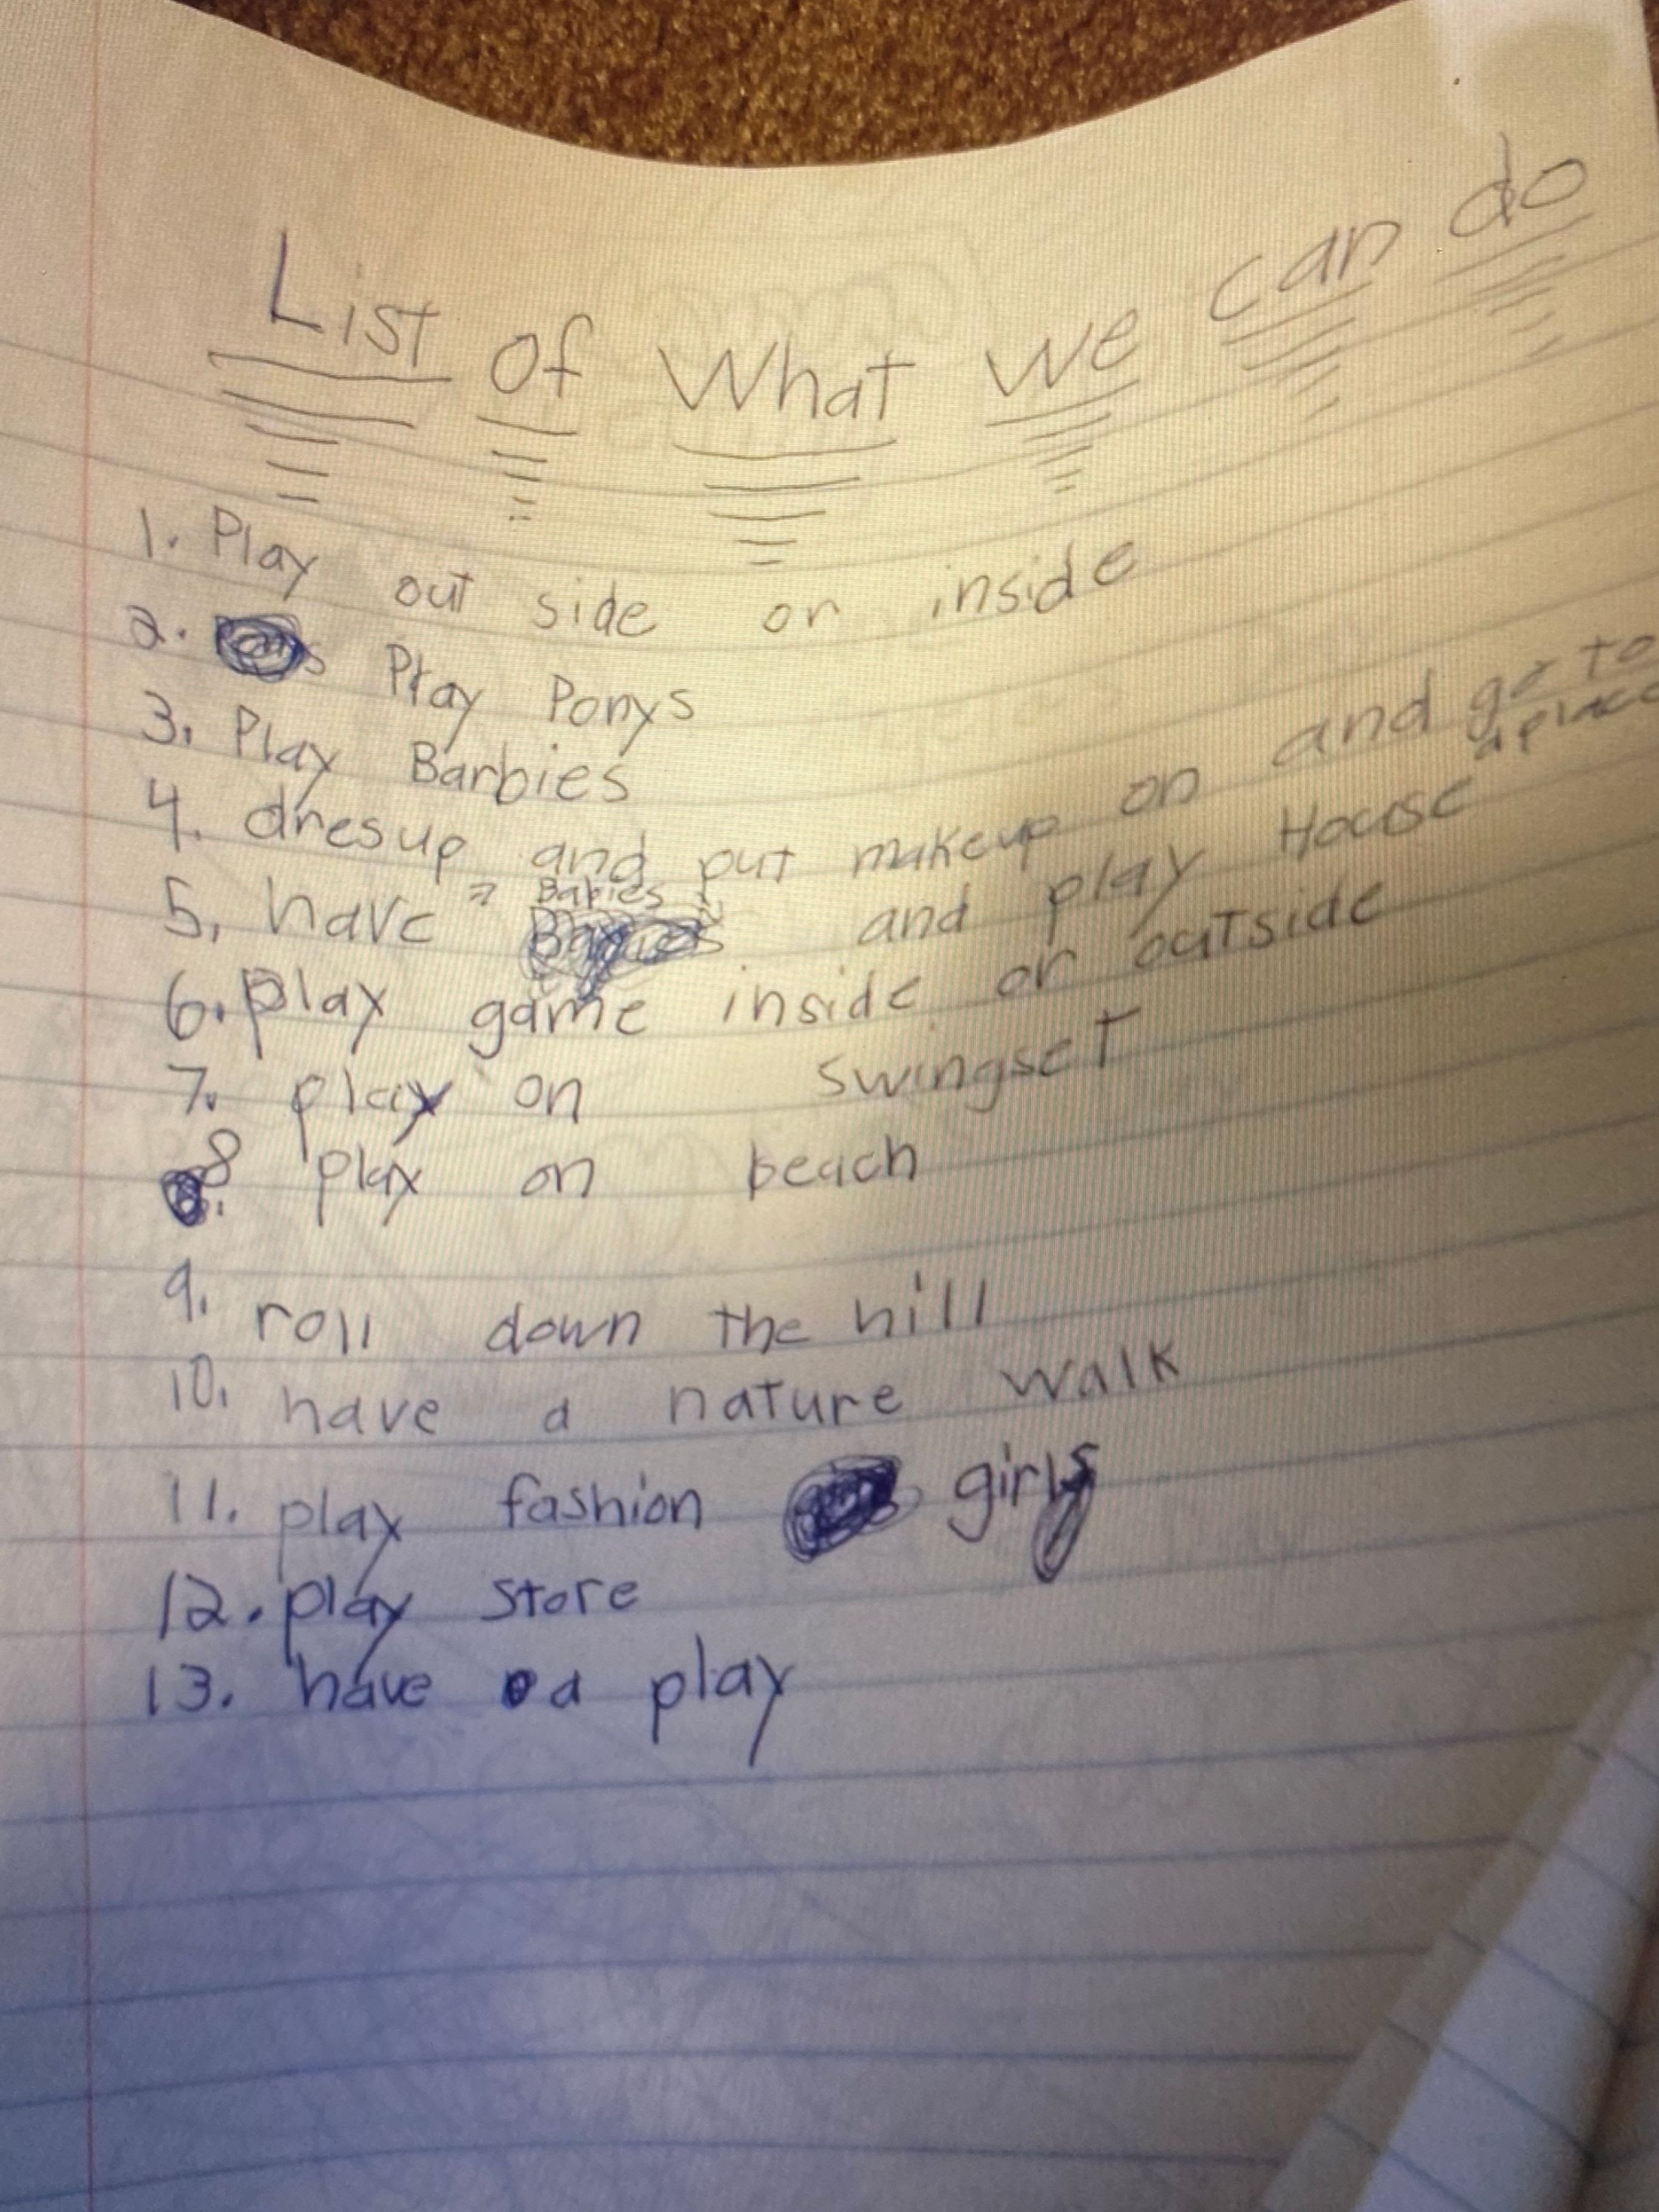 List of What we can do
1. Play out side or inside
2. Play Ponys
3. Play Barbies
4. dresup and put makeup on and go to a place
5. have Babies and play House
6. play game inside or outside
7. play on swingset
8. play on beach
9. roll down the hill
10. have a nature walk
11. play fashion girls
12. play store
13. have a play